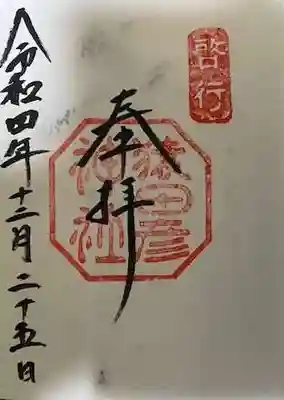 啓行
奉拝
猿田彦
神社
令和四年十二月二十五日